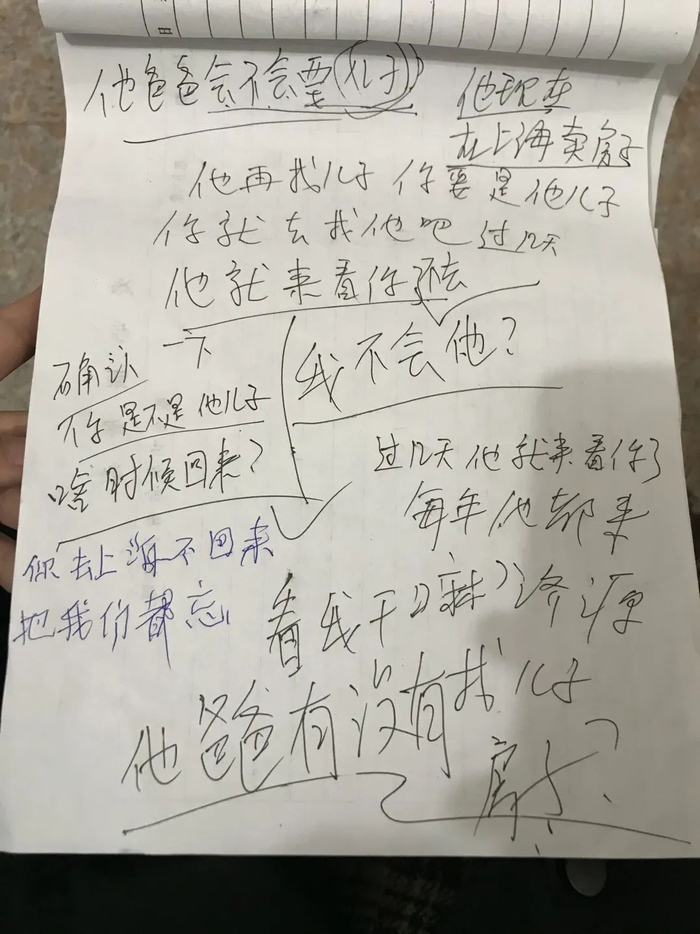 日
他爸爸会不会要(儿子)
他现在
在上海卖房子
他再找儿子 你要是他儿子
你就去找他吧 过几天
他就来看你还去
确认一下
你是不是他儿子
啥时候回来?
我不会他?
过几天他就来看你了
每年他都来
看我干(嘛)济源
你去上海不回来
把我们都忘
他爸爸有没有找儿子